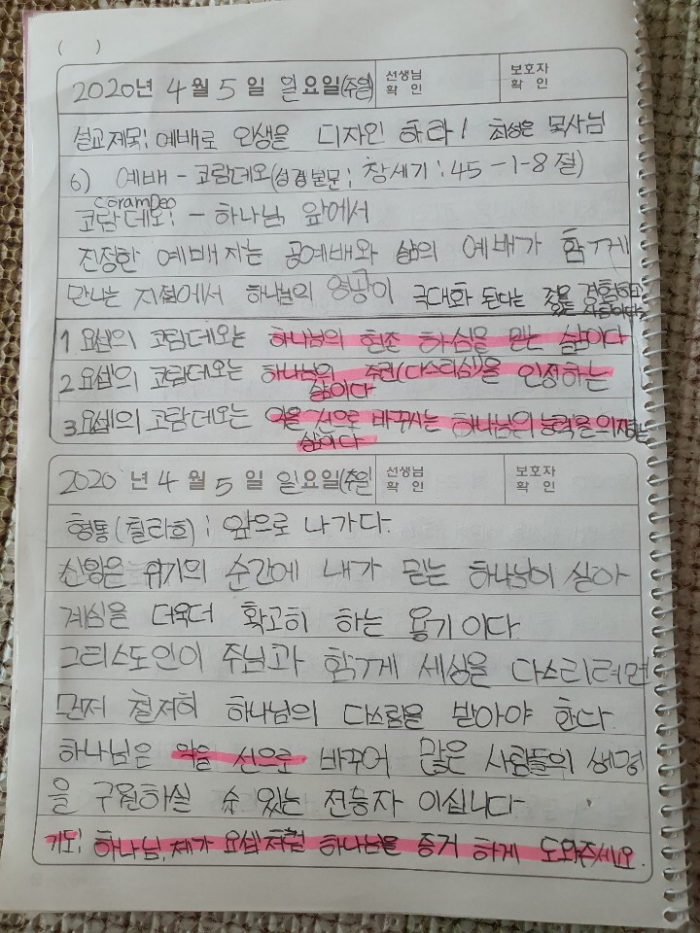 ( )
2020년 4월 5일 일요일(주일) 선생님 확인 보호자 확인
설교제목: 예배로 인생을 디자인 하라! 최성은 목사님
6) 예배 - 코람데오(성경본문: 창세기: 45-1-8절)
CoramDeo
코람데오: - 하나님 앞에서
진정한 예배자는 공예배와 삶의 예배가 함께
만나는 지점에서 하나님의 영광이 극대화 된다는 것을 경험하고
1 요셉의 코람데오는 하나님의 현존 하심을 믿는 삶이다
2 요셉의 코람데오는 하나님의 주권(다스리심)을 인정하는
삶이다
3 요셉의 코람데오는 악을 선으로 바꾸시는 하나님의 능력을 의지하는
삶이다
2020년 4월 5일 일요일(주일 선생님 확인 보호자 확인
형통(찰라흐): 앞으로 나가다.
신앙은 위기의 순간에 내가 믿는 하나님이 살아
계심을 더욱더 확고히 하는 용기이다
그리스도인이 주님과 함께 세상을 다스리려면
먼저 철저히 하나님의 다스림을 받아야 한다
하나님은 악을 선으로 바꾸어 많은 사람들의 생명
을 구원하실 수 있는 전능자 이십니다
기도: 하나님, 제가 요셉처럼 하나님을 증거 하게 도와주세요.